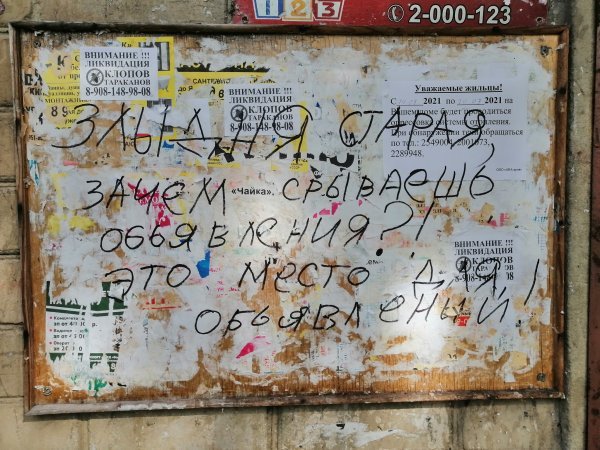 1 2 3
2-000-123
ВНИМАНИЕ !!!
ЛИКВИДАЦИЯ
КЛОПОВ
ТАРАКАНОВ
8-908-148-98-08
ВНИМАНИЕ !!!
ЛИКВИДАЦИЯ
КЛОПОВ
ТАРАКАНОВ
8-908-148-98-08
Уважаемые жильцы!
2021 по 2021 на
Вашем доме будет проводиться
системы отопления.
При обнаружении течи обращаться
по тел.: 2549004, 2001073,
2289948.
ЗЛЫДНЯ СТАРАЯ,
ЗАЧЕМ СРЫВАЕШЬ
«Чайка».
ОБЬЯВЛЕНИЯ?!
ЭТО МЕСТО ДЛЯ
ОБЬЯВЛЕНЫЙ!
ВНИМАНИЕ !!!
ЛИКВИДАЦИЯ
КЛОПОВ
ТАРАКАНОВ
8-908-148-98-08